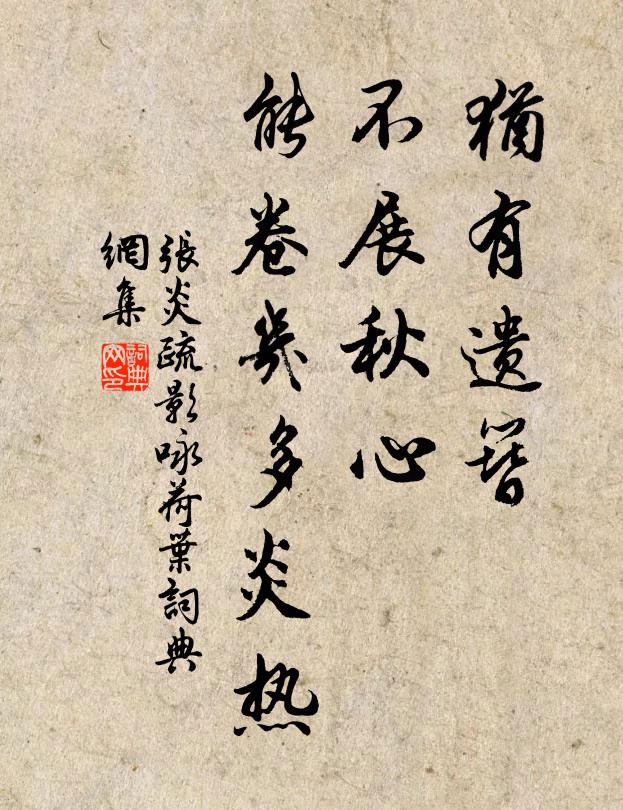 猶有遺簪
不展秋心
能卷幾多炎热
張炎疏影咏荷葉詞典
網集
詞典網印